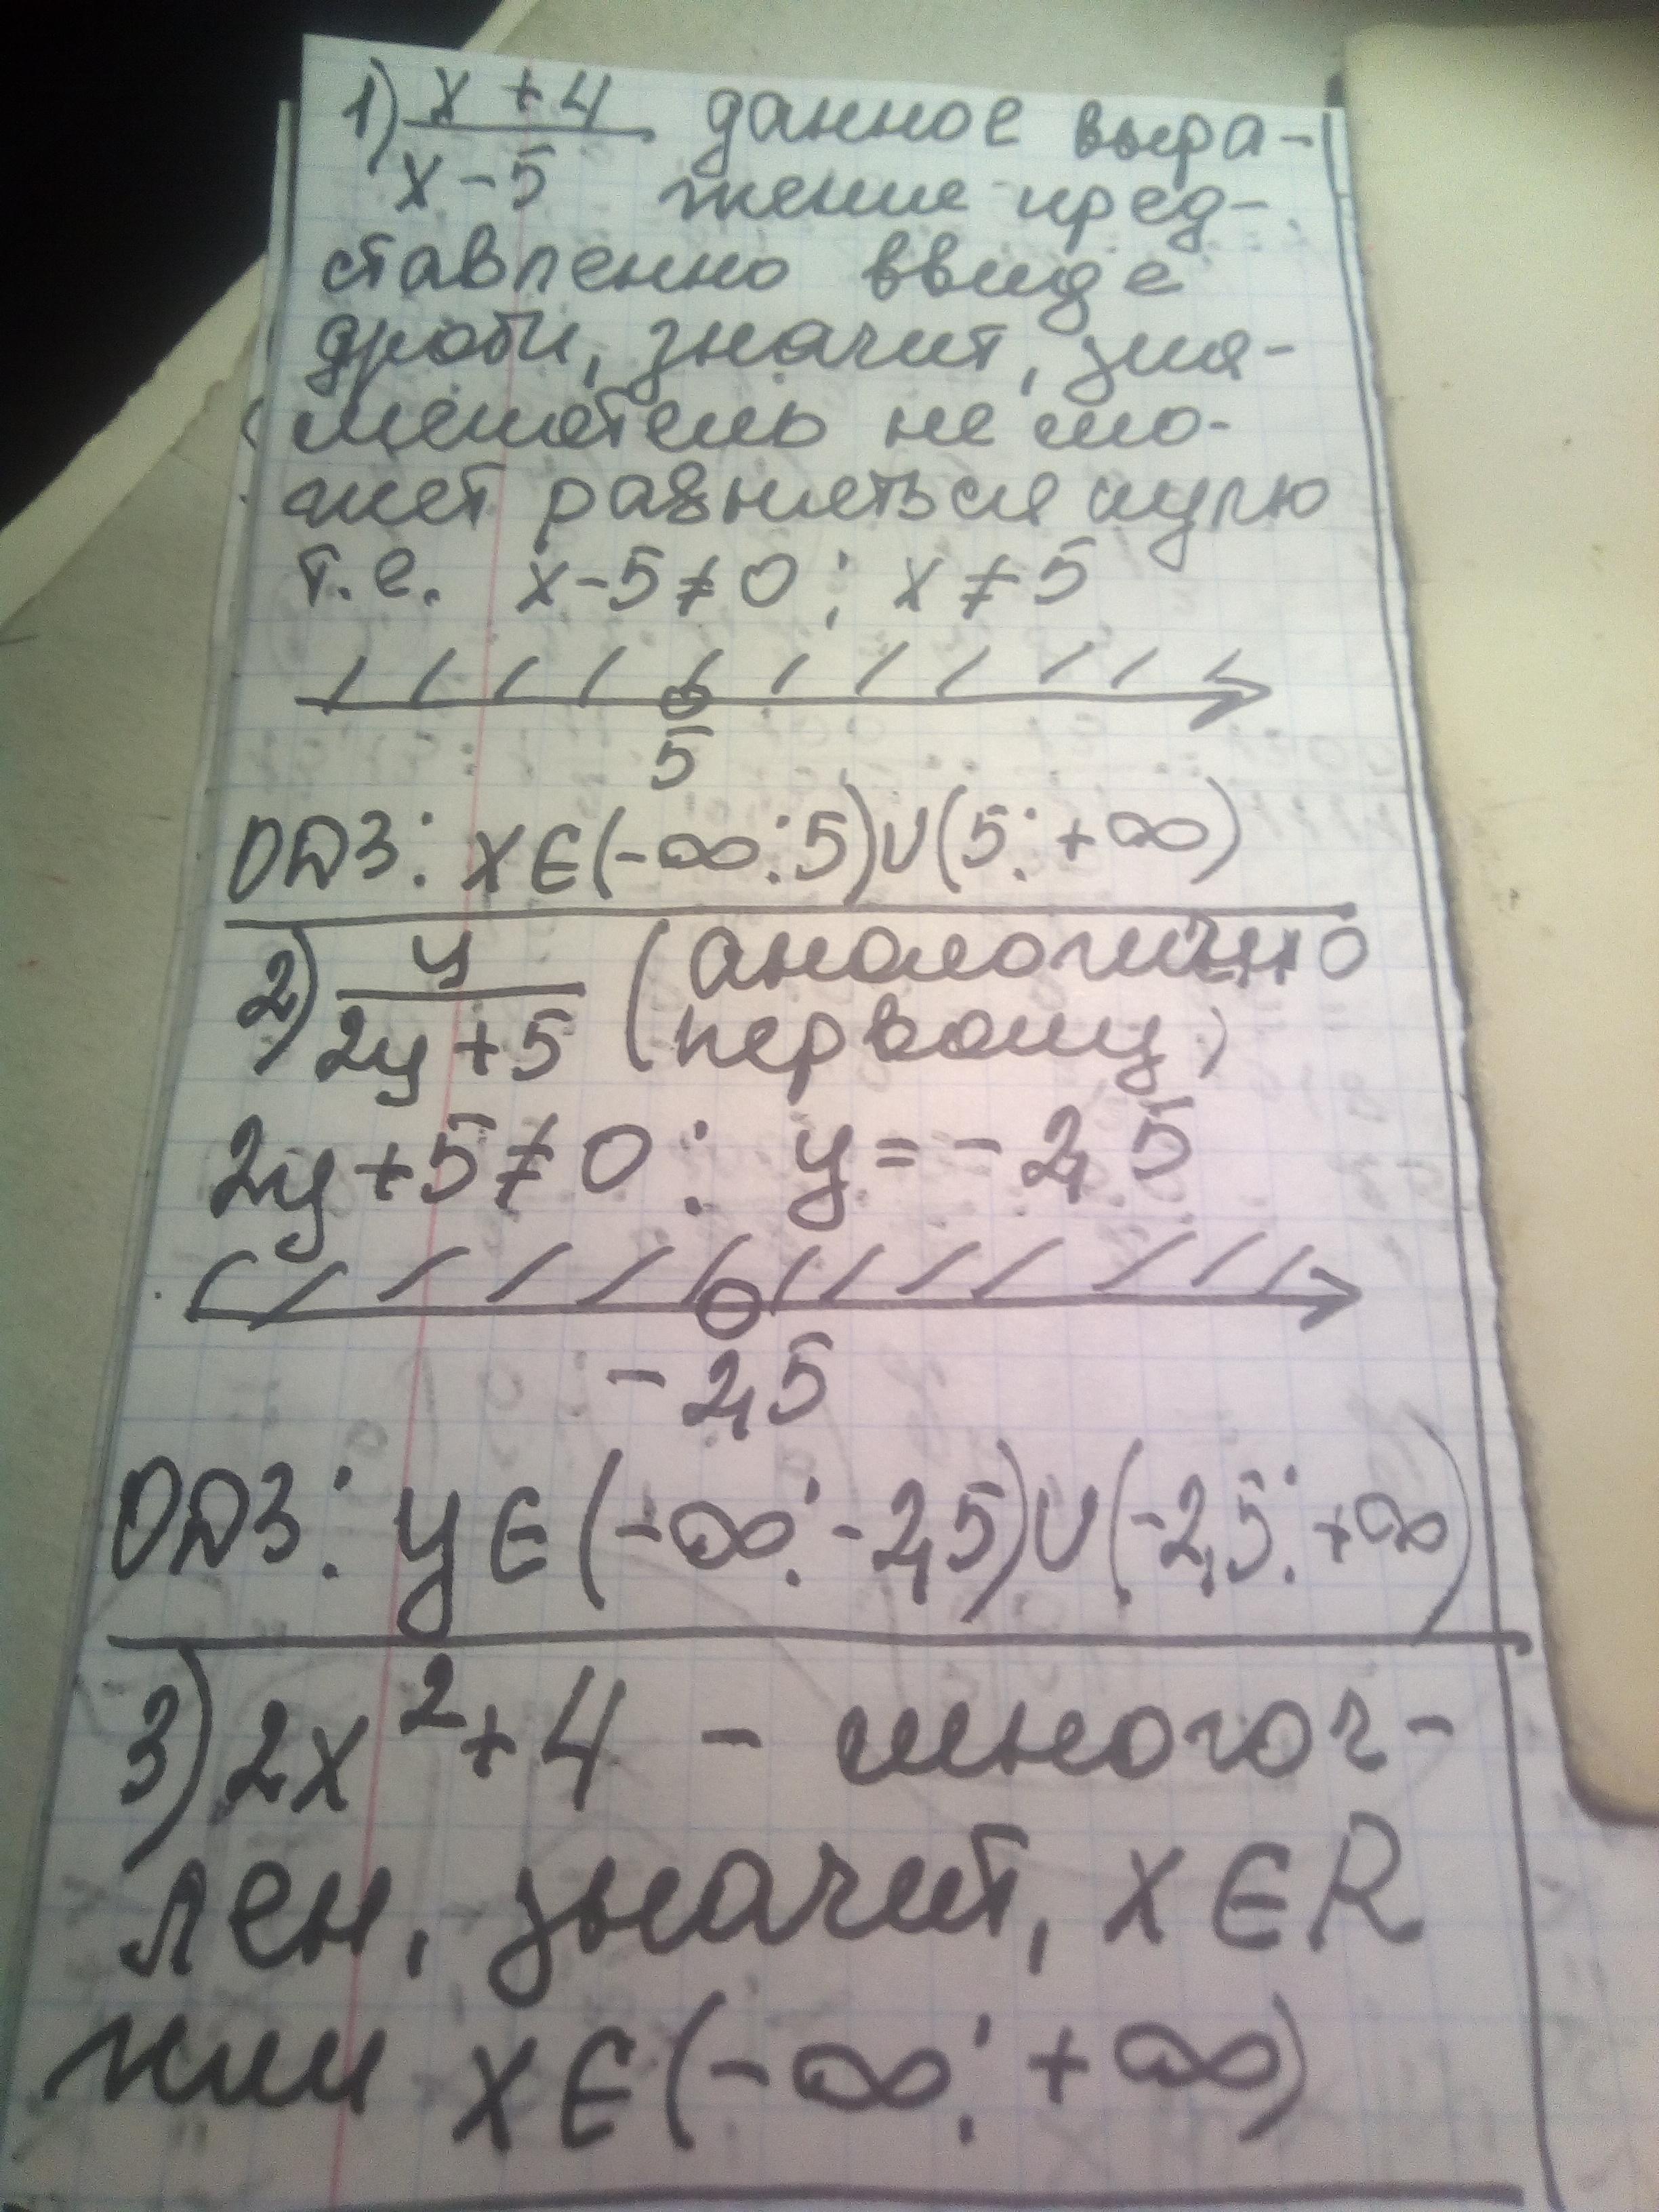 1) x + 4 / x - 5 данное выра-
жение пред-
ставленно ввиде
дроби, значит, зна-
менатель не мо-
жет равняться нулю
т.е. x - 5 ≠ 0 ; x ≠ 5
5
ОДЗ: x ∈ (-∞; 5) ∪ (5; +∞)
2) y / 2y + 5 (аналогично
первому)
2y + 5 ≠ 0; y = -2,5
-2,5
ОДЗ: y ∈ (-∞; -2,5) ∪ (-2,5; +∞)
3) 2x² + 4 - многоч-
лен, значит, x ∈ R
или x ∈ (-∞; +∞)